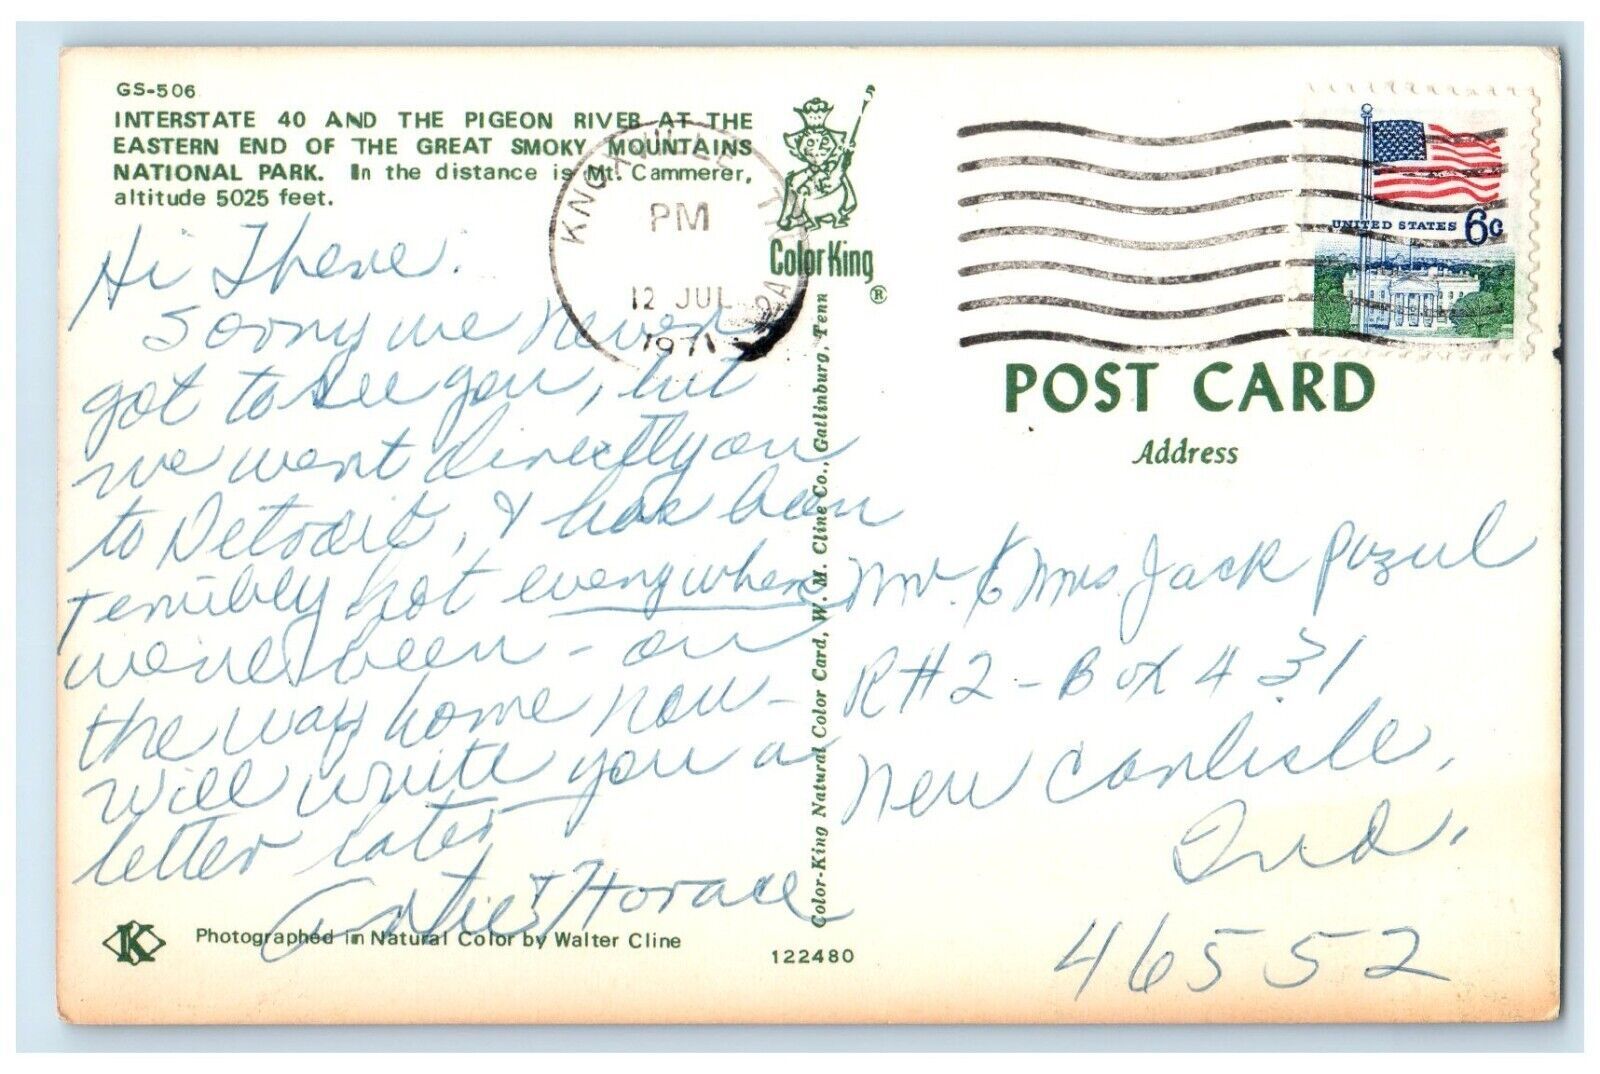 GS-506
INTERSTATE 40 AND THE PIGEON RIVER AT THE
EASTERN END OF THE GREAT SMOKY MOUNTAINS
NATIONAL PARK. In the distance is Mt. Cammerer,
altitude 5025 feet.
Hi There.
Sorry we never
got to see you, but
we went directly on
to Detroit, & has been
terribly hot everywhere
we've been - on
the way home now -
will write you a
letter later
& Horace
Photographed in Natural Color by Walter Cline
122480
K
KNOXVILLE, TN
PM
12 JUL
1971
Color King
®
Color-King Natural Color Card, W. M. Cline Co., Gatlinburg, Tenn
UNITED STATES 6c
POST CARD
Address
Mr. & Mrs Jack
R#2 - Box 431
New Carlisle,
Ind.
46552